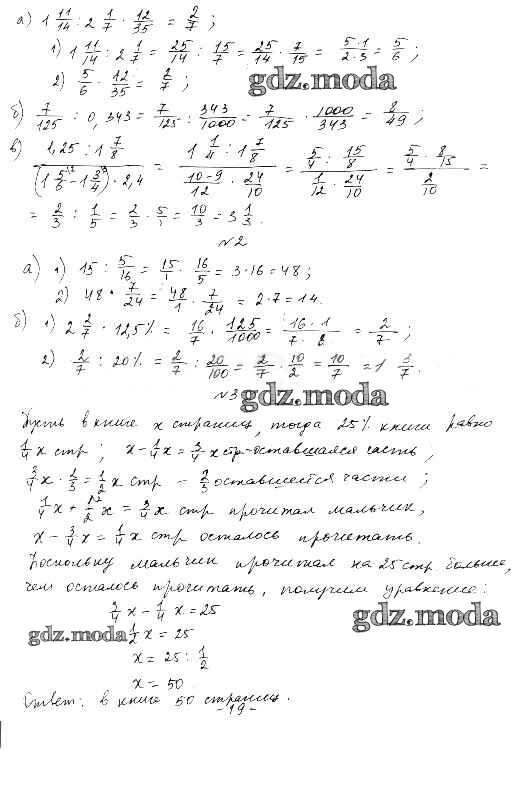 а) 1 11/14 : 2 1/7 · 12/35 = 2/7 ;
1) 1 11/14 : 2 1/7 = 25/14 : 15/7 = 25/14 · 7/15 = 5·1/2·3 = 5/6 ;
2) 5/6 · 12/35 = 2/7 ;
gdz.moda
б) 7/125 : 0,343 = 7/125 : 343/1000 = 7/125 · 1000/343 = 8/49 ;
в) 1,25 : 1 7/8 / (1 5/6 - 1 3/4) · 2,4 = 1 1/4 : 1 7/8 / 10-9/12 · 24/10 = 5/4 : 15/8 / 1/12 · 24/10 = 5/4 · 8/15 / 2/10 =
= 2/3 : 1/5 = 2/3 · 5/1 = 10/3 = 3 1/3.
№2
а) 1) 15 : 5/16 = 15/1 · 16/5 = 3·16 = 48 ;
2) 48 · 7/24 = 48/1 · 7/24 = 2·7 = 14.
б) 1) 2 2/7 · 12,5% = 16/7 · 125/1000 = 16·1/7·8 = 2/7 ;
2) 2/7 : 20% = 2/7 : 20/100 = 2/7 · 10/2 = 10/7 = 1 3/7.
№3
gdz.moda
Пусть в книге x страниц, тогда 25% книги равно
1/4 x стр ; x - 1/4 x = 3/4 x стр - оставшаяся часть ;
3/4 x · 2/3 = 1/2 x стр - 2/3 оставшейся части ;
1/4 x + 1/2 x = 3/4 x стр прочитал мальчик,
x - 3/4 x = 1/4 x стр осталось прочитать.
Поскольку мальчик прочитал на 25 стр больше,
чем осталось прочитать, получим уравнение:
3/4 x - 1/4 x = 25
gdz.moda
gdz.moda
1/2 x = 25
x = 25 : 1/2
x = 50
Ответ: в книге 50 страниц.
-19-